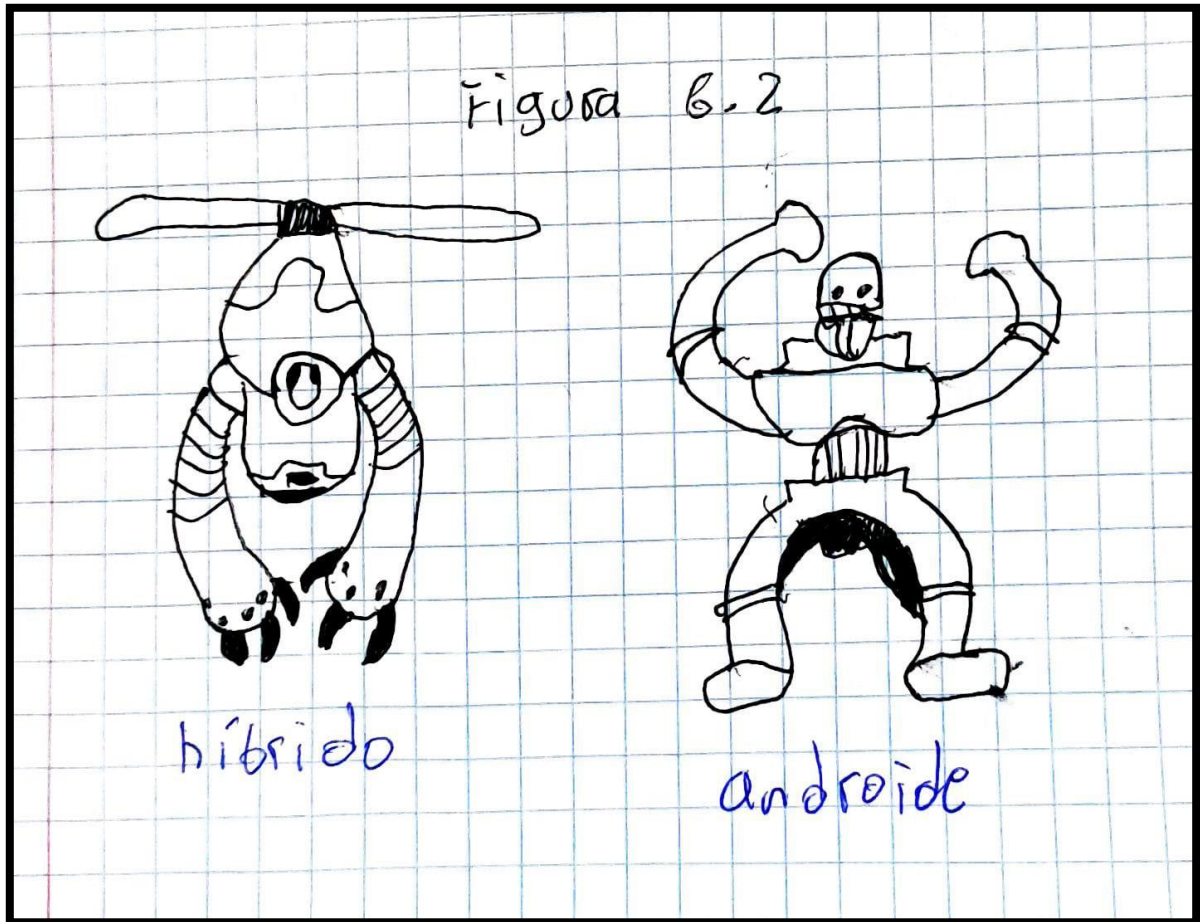 Figura 6.2
híbrido
androide